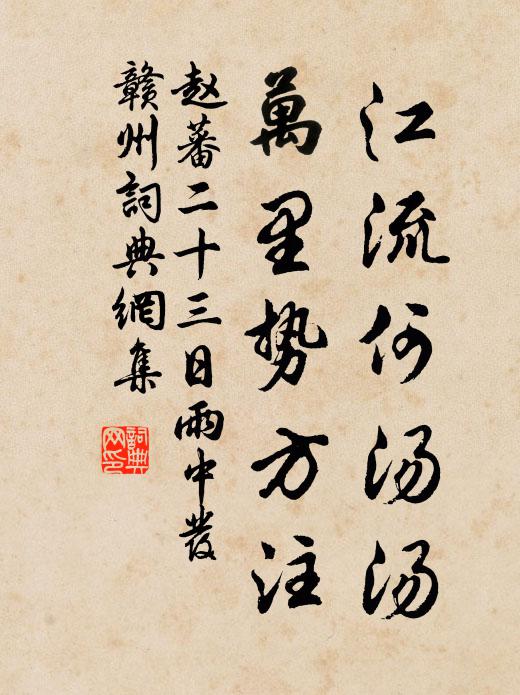 江流何汤汤
萬里势方注
赵蕃二十三日雨中發
贛州詞典網集
詞典网印